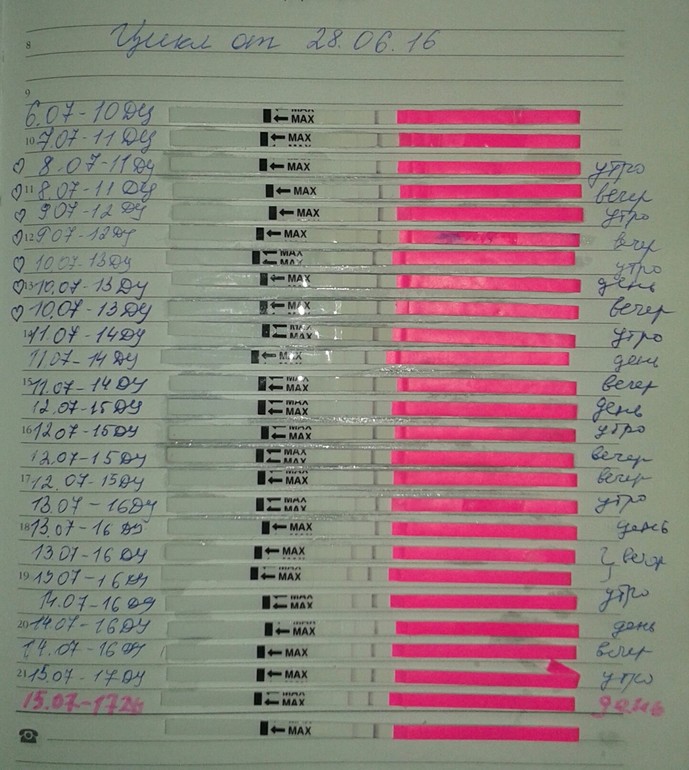 8 Цикл от 28.06.16
9
6.07-10 ДЦ MAX
10 7.07-11 ДЦ MAX
8.07-11 ДЦ MAX утро
11 8.07-11 ДЦ MAX вечер
9.07-12 ДЦ MAX утро
12 9.07-12 ДЦ MAX вечер
10.07-13 ДЦ MAX утро
13 10.07-13 ДЦ MAX день
10.07-13 ДЦ MAX вечер
14 11.07-14 ДЦ MAX утро
11.07-14 ДЦ MAX день
15 11.07-14 ДЦ MAX вечер
12.07-15 ДЦ MAX день
16 12.07-15 ДЦ MAX утро
12.07-15 ДЦ MAX вечер
17 12.07-15 ДЦ MAX вечер
13.07-16 ДЦ MAX утро
18 13.07-16 ДЦ MAX день
13.07-16 ДЦ MAX вечер
19 13.07-16 ДЦ MAX
14.07-16 ДЦ MAX утро
20 14.07-16 ДЦ MAX день
14.07-16 ДЦ MAX вечер
21 15.07-17 ДЦ MAX утро
15.07-17 ДЦ MAX день
MAX